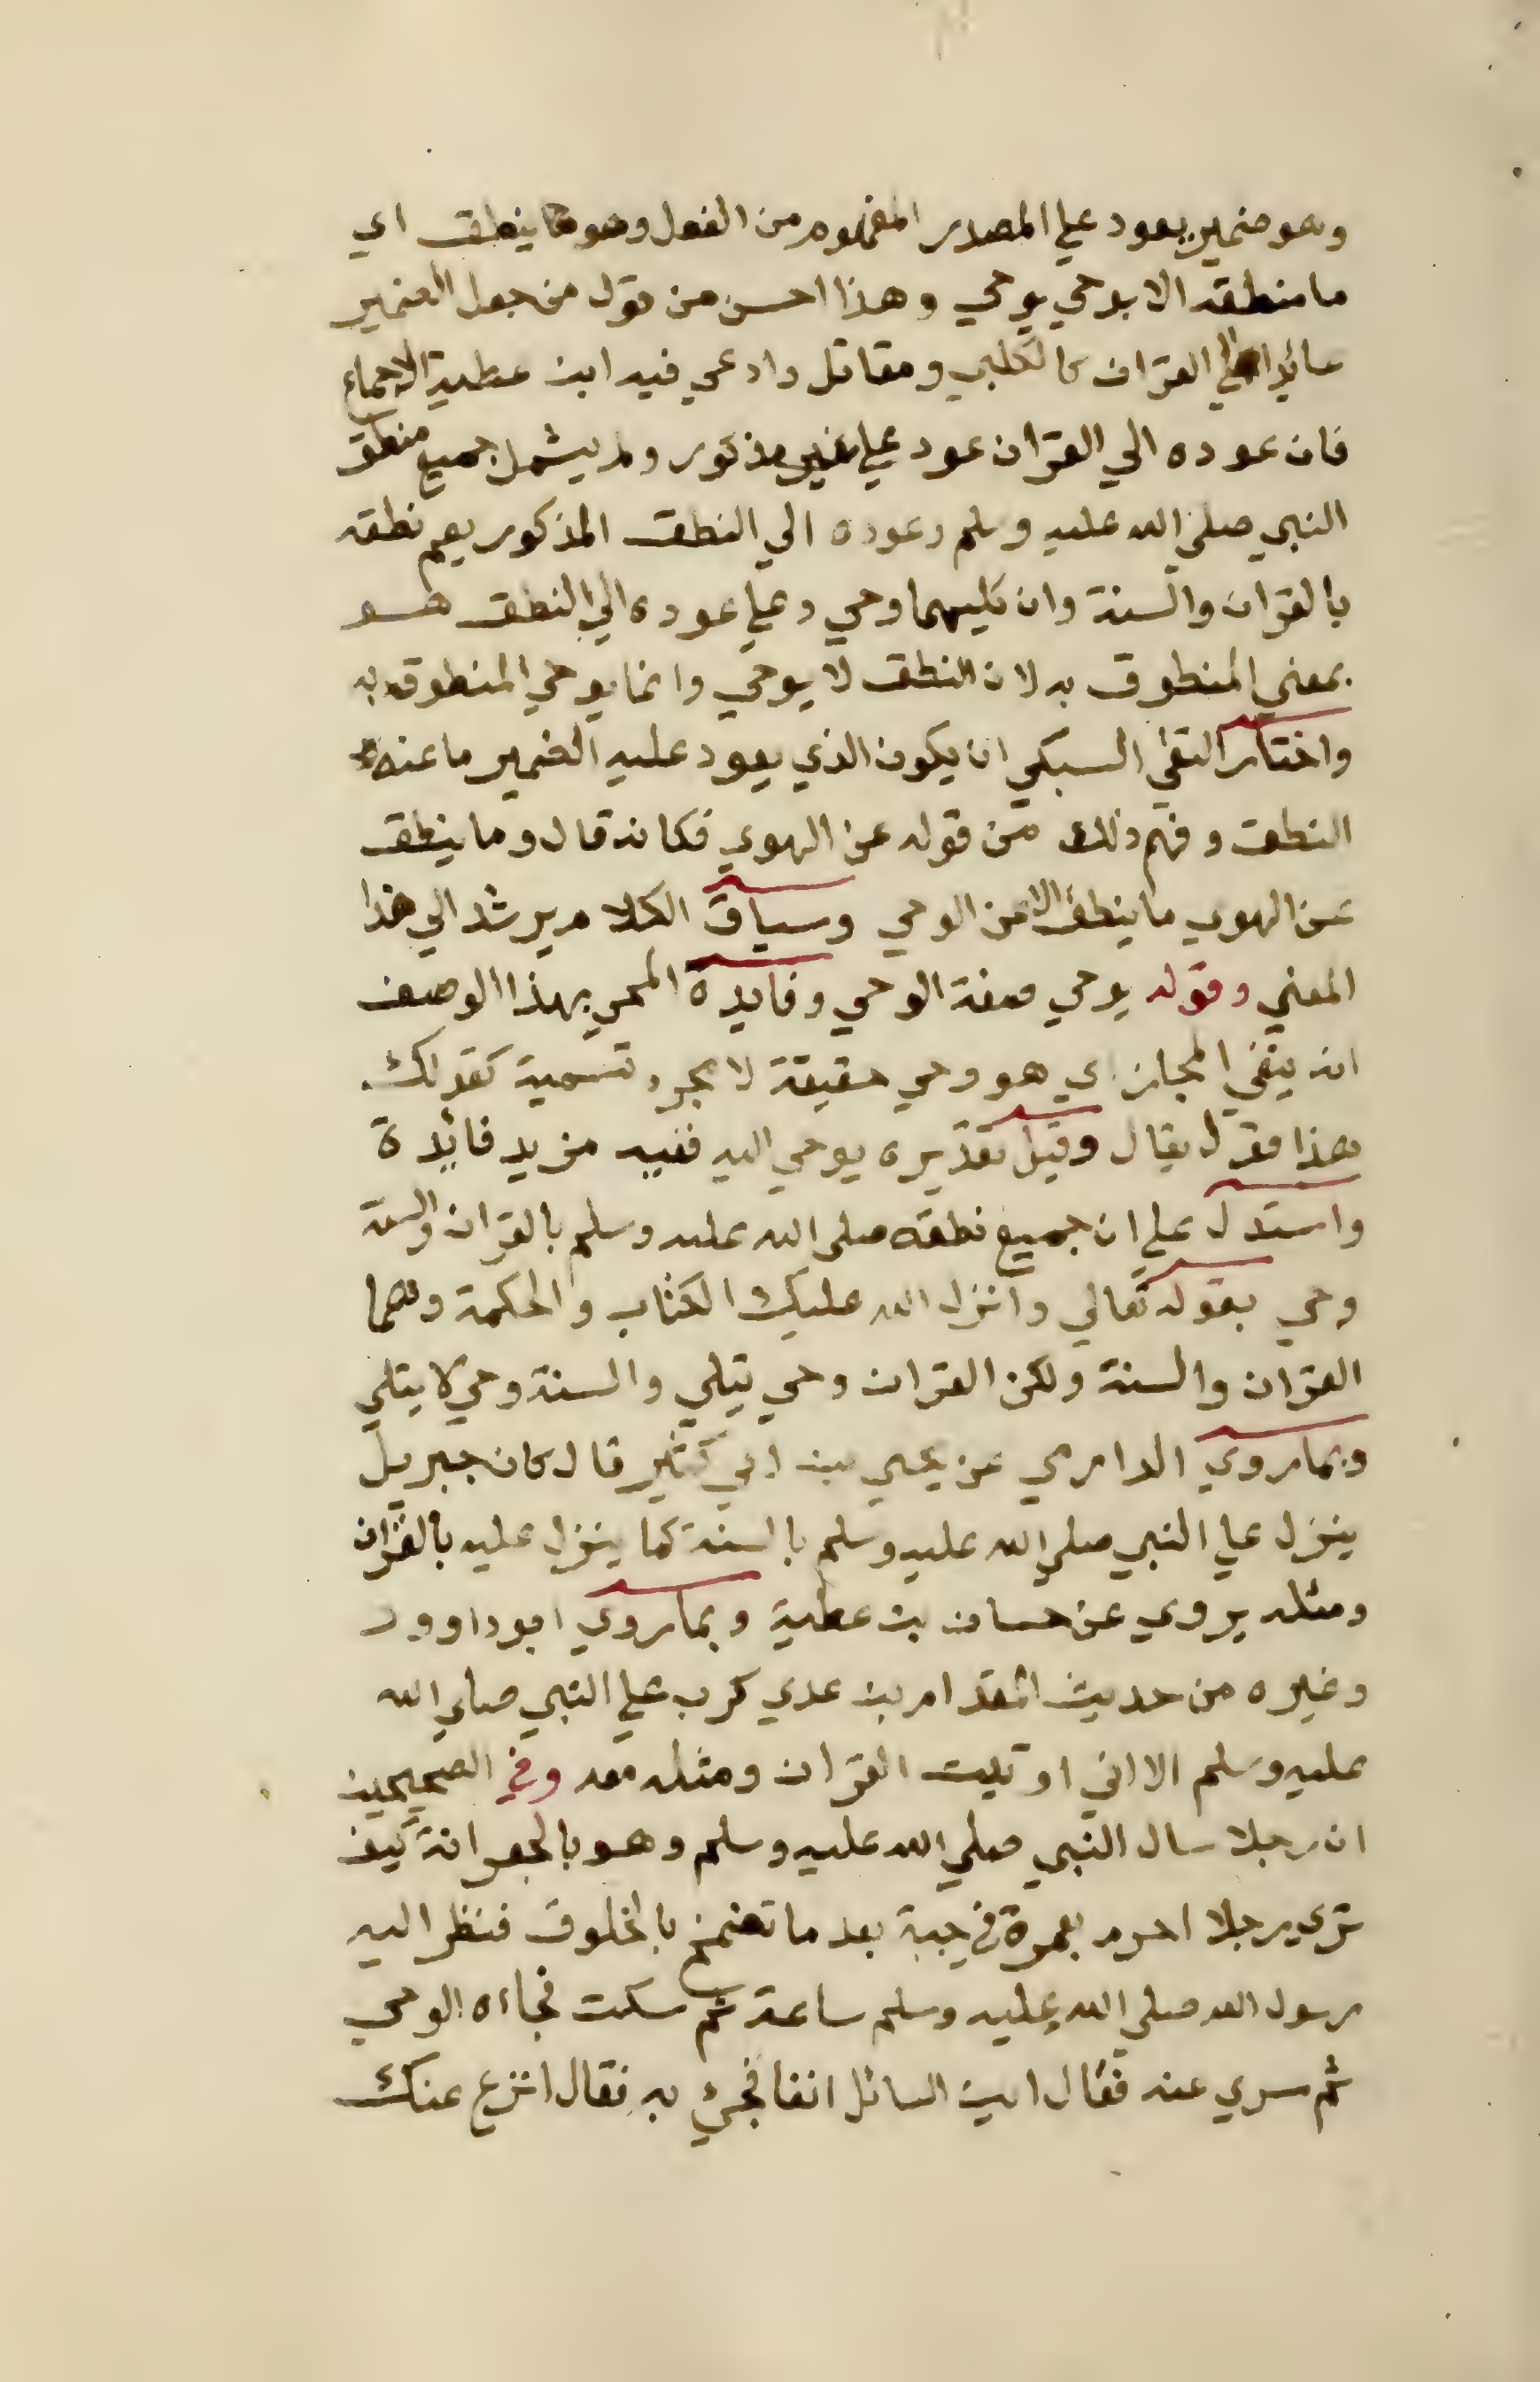 وهو ضمير يعود علي المصدر المفهوم من الفعل وهو ما ينطق اي
ما منطقه الا بوحي يوحي وهذا احسن من قول من جعل الضمير
عائدا الي القران كالكلبي ومقاتل وادعي فيه ابن عطية الاجماع
فان عوده الي القران عود علي غير مذكور ولم يشمل جميع منطق
النبي صلي الله عليه وسلم وعوده الي النطق المذكور يعم نطقه
بالقران والسنة وان كليهما وحي وعلي عوده الي النطق هو
بمعني المنطوق به لان النطق لا يوحي وانما يوحي المنطوق به
واختار التقي السبكي ان يكون الذي يعود عليه الضمير ما عنه
النطق وفهم ذلك من قوله عن الهوي فكانه قال وما ينطق
عن الهوي ما ينطق الا عن الوحي وسياق الكلام يرشد الي هذا
المعني وقوله يوحي صفة الوحي وفايدة المجي بهذا الوصف
انه ينفي المجاز اي هو وحي حقيقة لا بمجرد تسمية كقولك
هذا قول يقال وقيل تقديره يوحي اليه ففيه مزيد فائدة
واستدل علي ان جميع نطقه صلي الله عليه وسلم بالقران والسنة
وحي بقوله تعالي وانزل الله عليك الكتاب والحكمة وهما
القران والسنة ولكن القران وحي يتلي والسنة وحي لا يتلي
وبما روي الدارمي عن يحيي بن ابي كثير قال كان جبريل
ينزل علي النبي صلي الله عليه وسلم بالسنة كما ينزل عليه بالقران
ومثله يروي عن حسان بن عطية وبما روي ابو داوود
وغيره من حديث المقدام بن عدي كرب علي النبي صلي الله
عليه وسلم الا اني اوتيت القران ومثله معه وفي الصحيحين
ان رجلا سال النبي صلي الله عليه وسلم وهو بالجعرانة كيف
تري رجلا احرم بعمرة في جبة بعد ما تضمخ بالخلوق فنظر اليه
رسول الله صلي الله عليه وسلم ساعة ثم سكت فجاءه الوحي
ثم سري عنه فقال اين السائل انفا فجئ به فقال انزع عنك